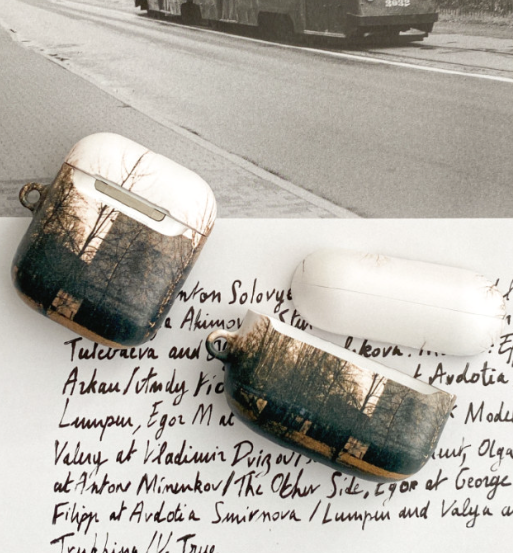 2022
nton Solovye
a Akimov
Tulebaeva and kova.
Arkau/Andy Avdotia
Lumpen, Egor M at Mode
Valery at Vladimir Olga
at Anton Minenkov/The Other Side, Egor at George
Filipp at Avdotia Smirnova/Lumpen and Valya a
Trubkina/V True